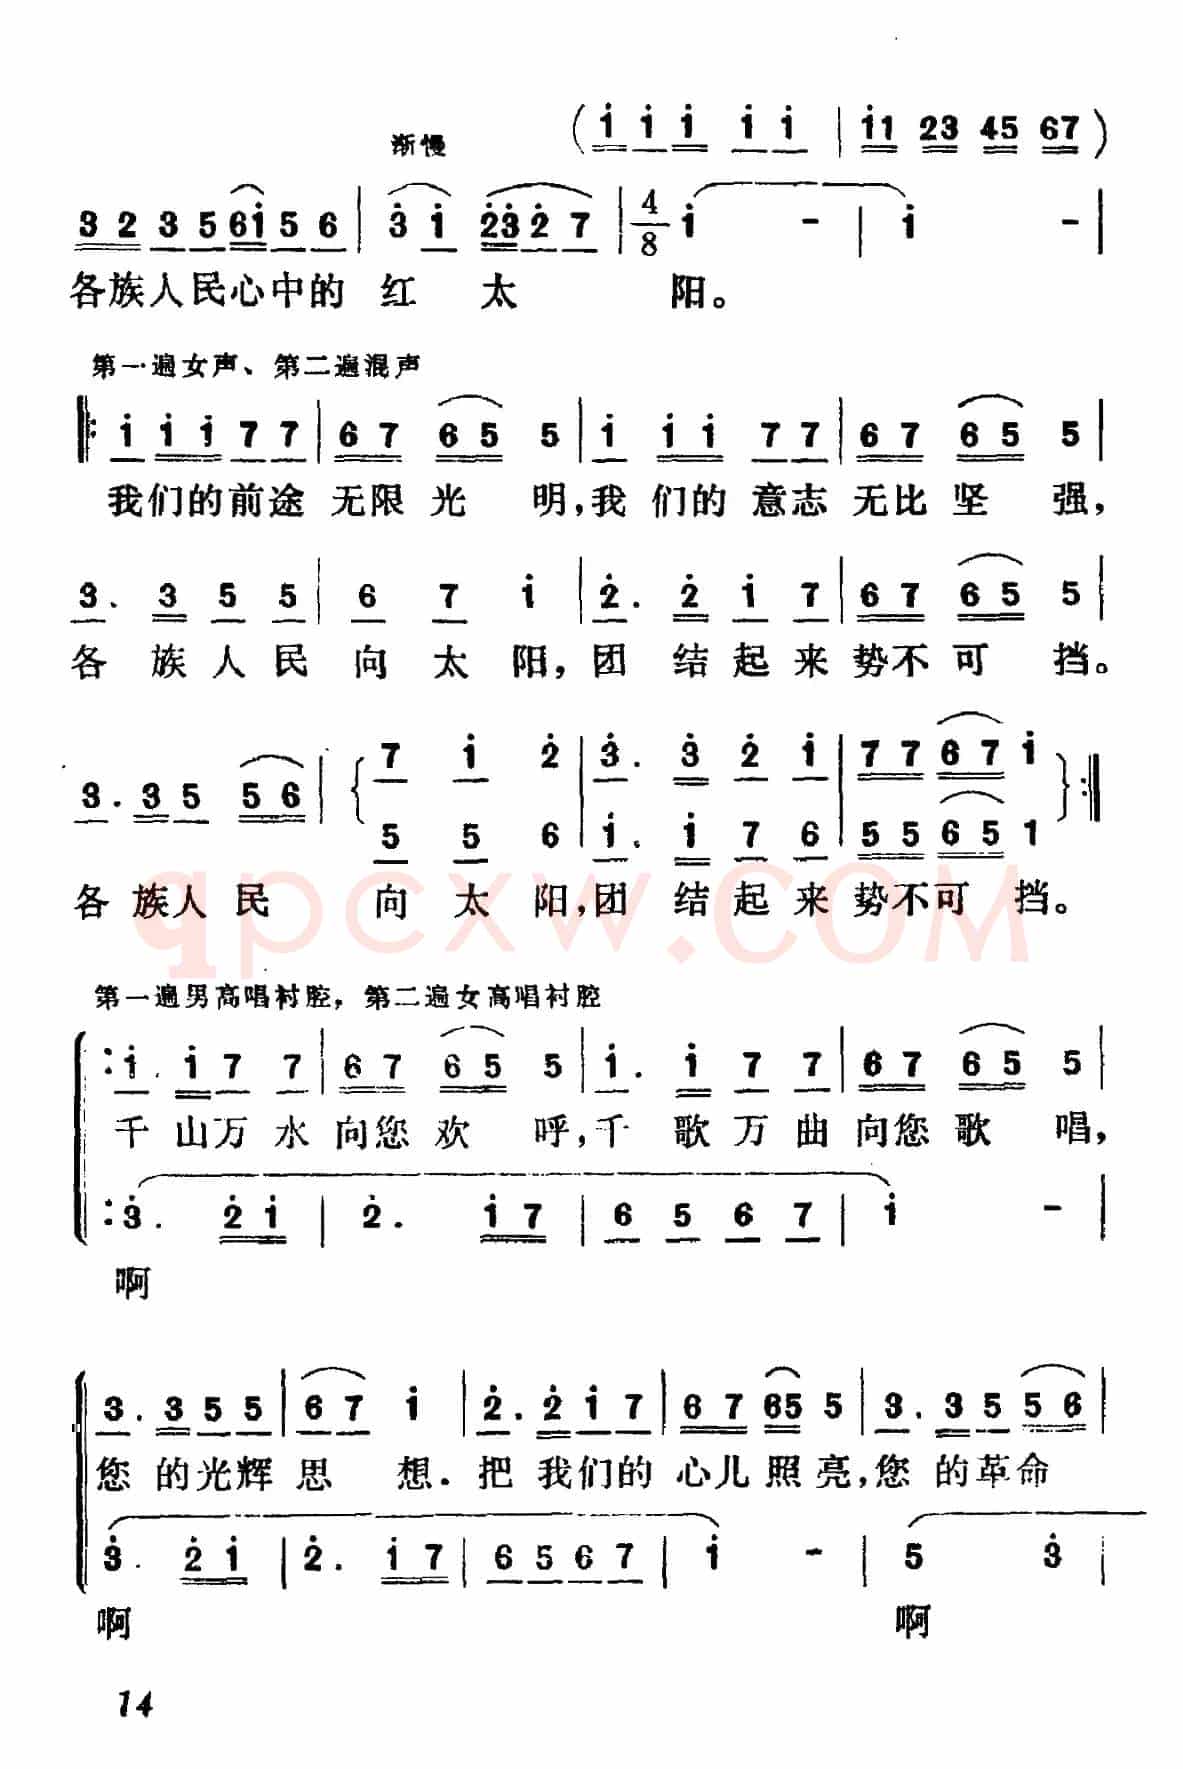 渐慢
(i i i i i | i1 23 45 67)
3 2 3 5 6i 5 6 | 3 i 23 2 7 | 4/8 i - | i - |
各族人民心中的 红 太 阳。
第一遍女声、第二遍混声
‖: i i i 7 7 | 6 7 6 5 5 | i i i 7 7 | 6 7 6 5 5 |
我们的前途 无限光 明,我 们的 意志 无比 坚 强,
3. 3 5 5 | 6 7 i | 2. 2 i 7 | 6 7 6 5 5 |
各 族 人 民 向 太 阳,团 结 起 来 势不 可 挡。
7 i 2 | 3. 3 2 i | 7 7 6 7 i
3. 3 5 5 6 | { } :‖
5 5 6 | i. i 7 6 | 5 5 6 5 1
各 族人 民 向 太 阳,团 结 起 来 势不可 挡。
qpcxw.COM
第一遍男高唱衬腔,第二遍女高唱衬腔
: i. i 7 7 | 6 7 6 5 5 | i. i 7 7 | 6 7 6 5 5 |
千 山万 水 向您 欢 呼,千 歌 万 曲 向您 歌 唱,
: 3. 2 i | 2. i 7 | 6 5 6 7 | i - |
啊
3. 3 5 5 | 6 7 i | 2. 2 i 7 | 6 7 65 5 | 3. 3 5 5 6 |
您 的光辉 思 想.把 我们的 心儿 照 亮,您 的革命
3. 2 i | 2. i 7 | 6 5 6 7 | i - | 5 3 |
啊 啊
14